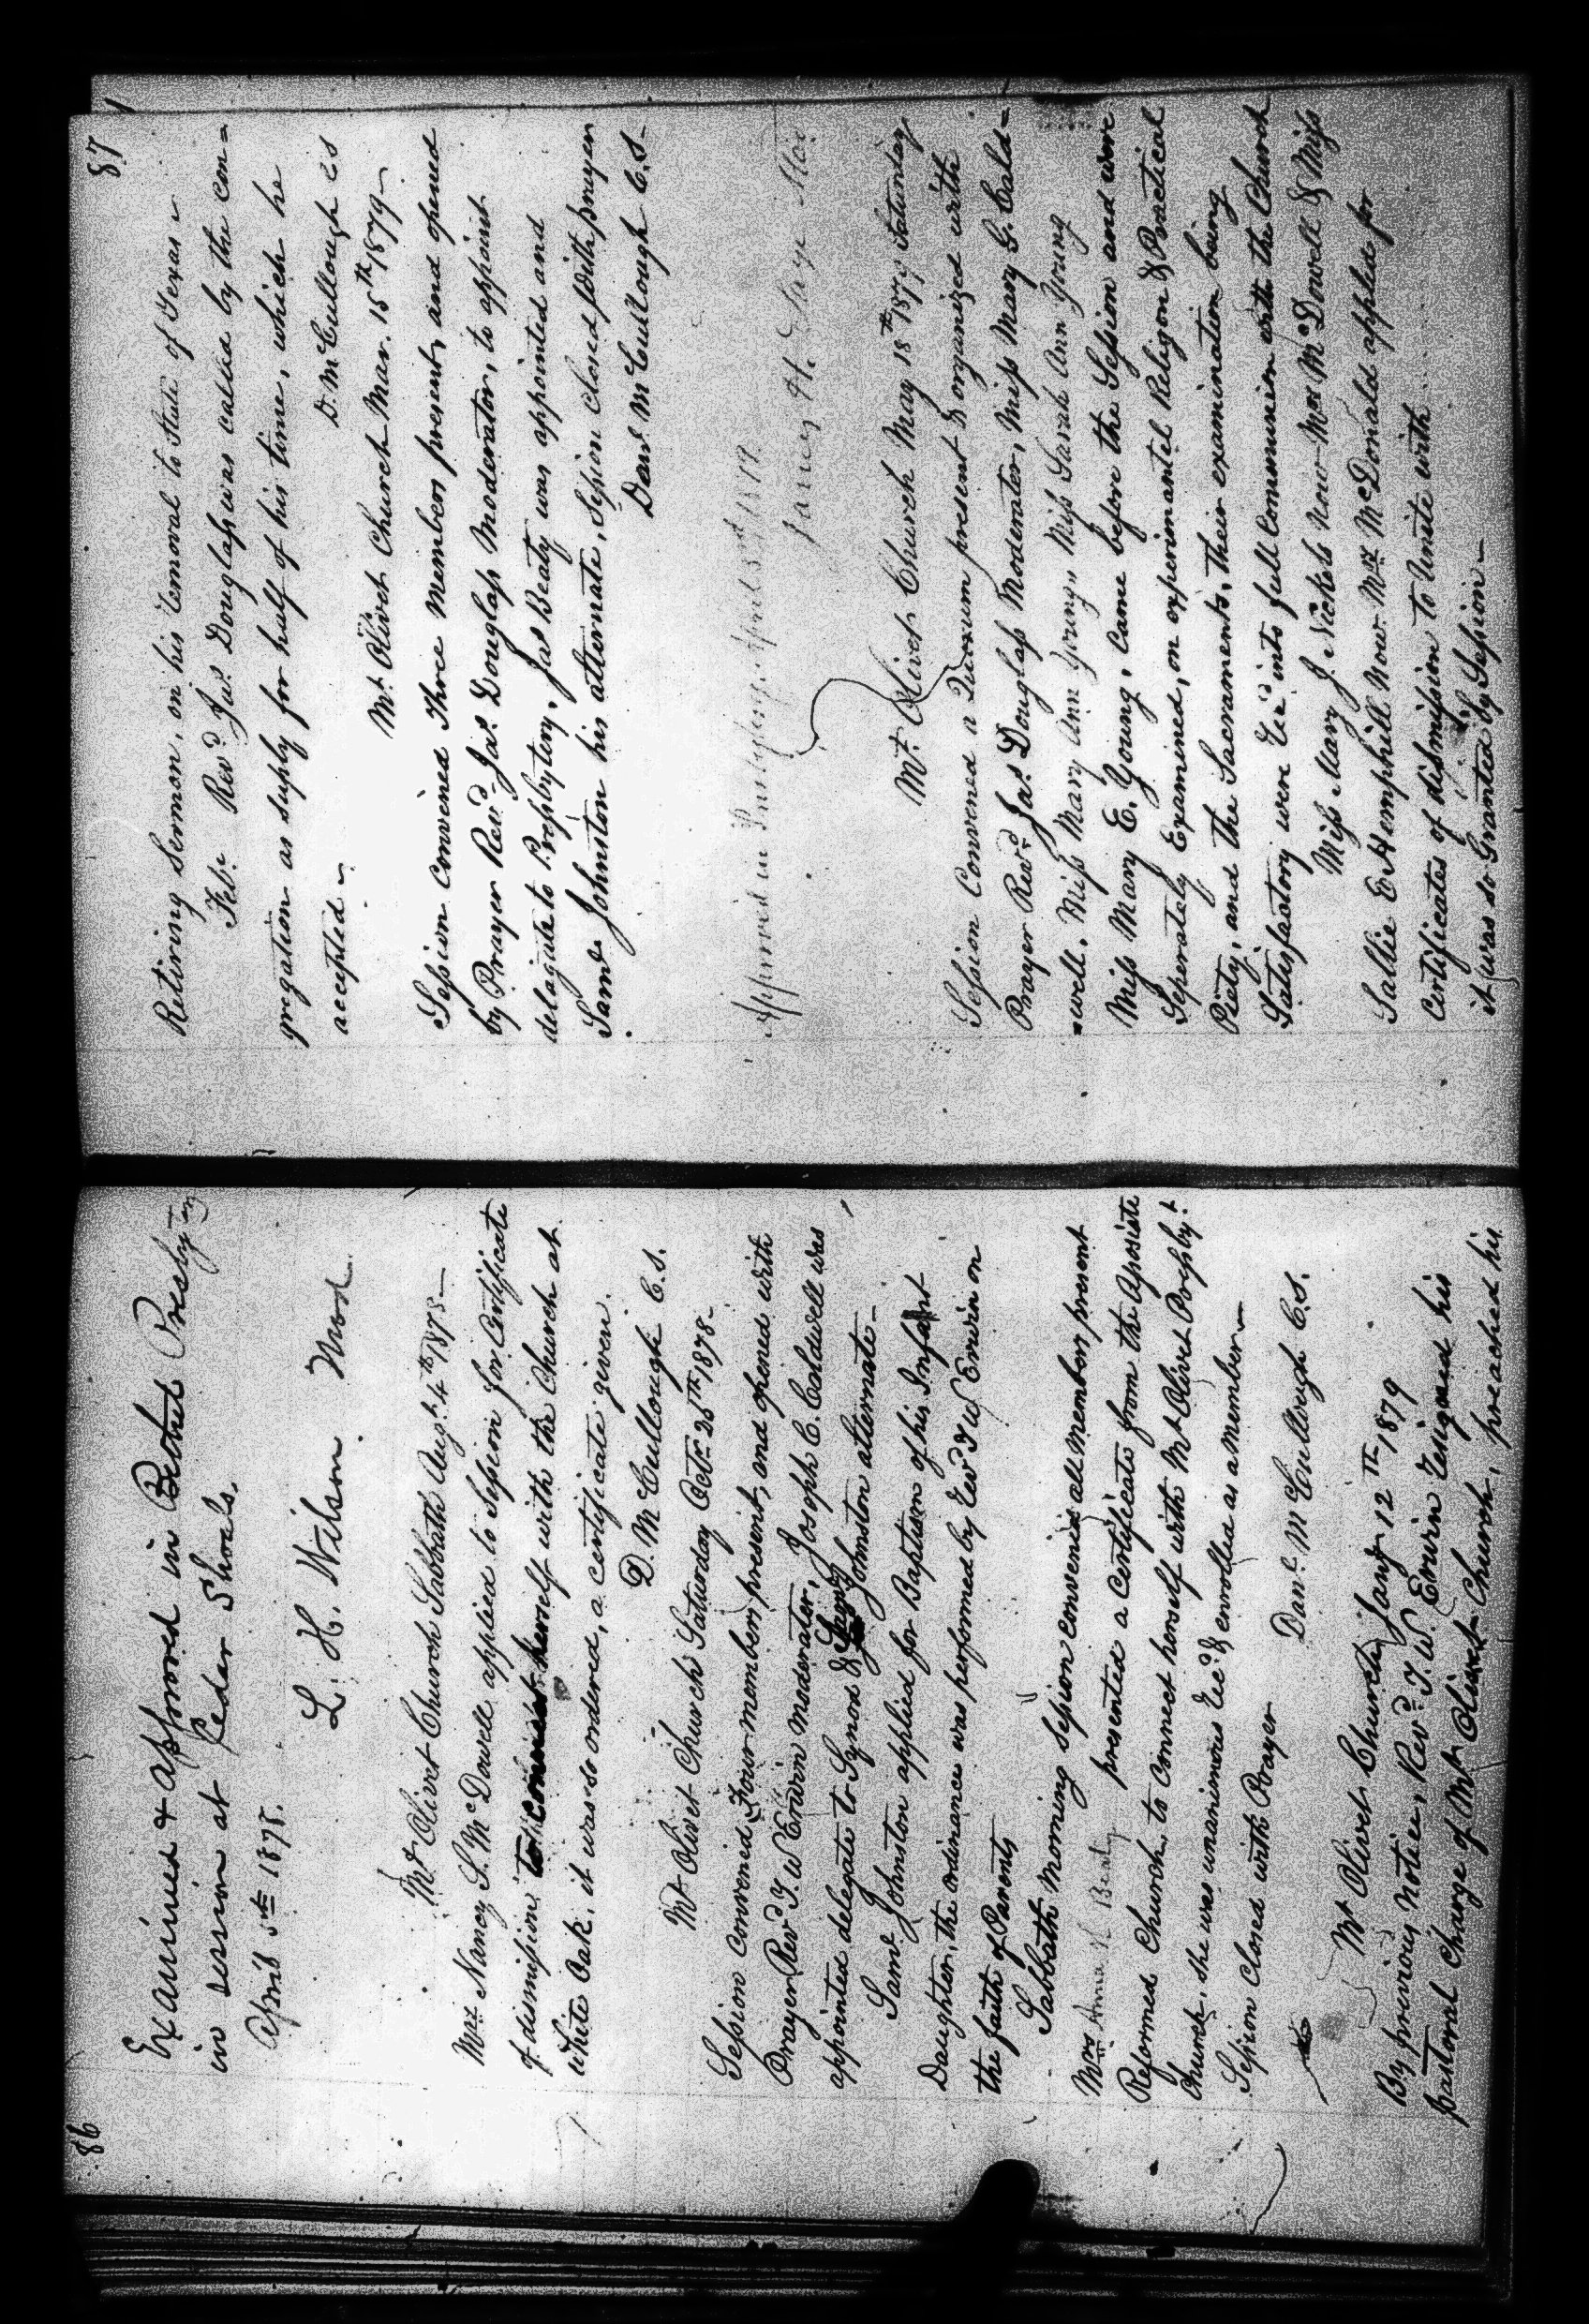 86
Examined & approved in Bethel Presbytery
in session at Cedar Shoals.
April 5th 1878.
L. H. Wilson Mod.
Mt Olivet Church Sabbath Augt 4th 1878—
Mrs Nancy S. McDowell applied to Session for Certificate
of dismission to connect herself with the Church at
White Oak, it was so ordered, a certificate given.
D. McCullough C.S.
Mt Olivet Church Saturday Octr 26th 1878—
Session convened Four members present, and opened with
Prayer Revd T. W Erwin Moderator, Joseph C. Caldwell was
appointed delegate to Synod & Saml Johnston alternate—
Saml Johnston applied for Baptism of his Infant
Daughter, the ordinance was performed by Revd T W Erwin on
the faith of Parents
Sabbath Morning session convened all members present
Mrs Anna H Beaty presented a Certificate from the Associate
Reformed Church, to connect herself with Mt Olivet Presbyt
Church. She was unanimous Recd & enrolled as a member—
Session closed with Prayer
Danl McCullough C.S.
Mt Olivet Church Jany 12th 1879
By previous Notice, Revd T. W. Erwin resigned his
pastoral Charge of Mt Olivet Church, preached his
87
Retiring Sermon, on his removal to State of Texas—
Feb: Revd Jas Douglass was called by the con=
gregation as supply for half of his time, which he
accepted— D. McCullough CS
Mt Olivet Church Mar. 15th 1879—
Session convened Three Members present, and opened
by Prayer Revd Jas. Douglass Moderator, to appoint
delagate to Presbytery, Jas Beaty was appointed and
Saml Johnston his alternate, Session closed with prayer
Danl McCullough C.S—
Approved in Presbytery, April 3rd 1879.
James H. Saye Mod.
Mt. Olivet Church May 18th 1879 Saturday
Session Convened a Quorum present & organized with
Prayer Revd Jas. Douglass Moderator, Miss Mary G. Cald=
well. Miss Mary Ann Young, Miss Sarah Ann Young
Miss Mary E. Young, Came before the Session and were
Seperately Examined, on experimantil Religon & Practical
Piety, and the Sacraments, their examination being
Satisfactory were Recd into full Communion with the Church
Miss Mary J Nickels Now Mrs McDowell & Miss
Sallie E Hemphill Now Mrs McDonald applied for
Certificates of dismission to Unite with
it was so Granted by Session—